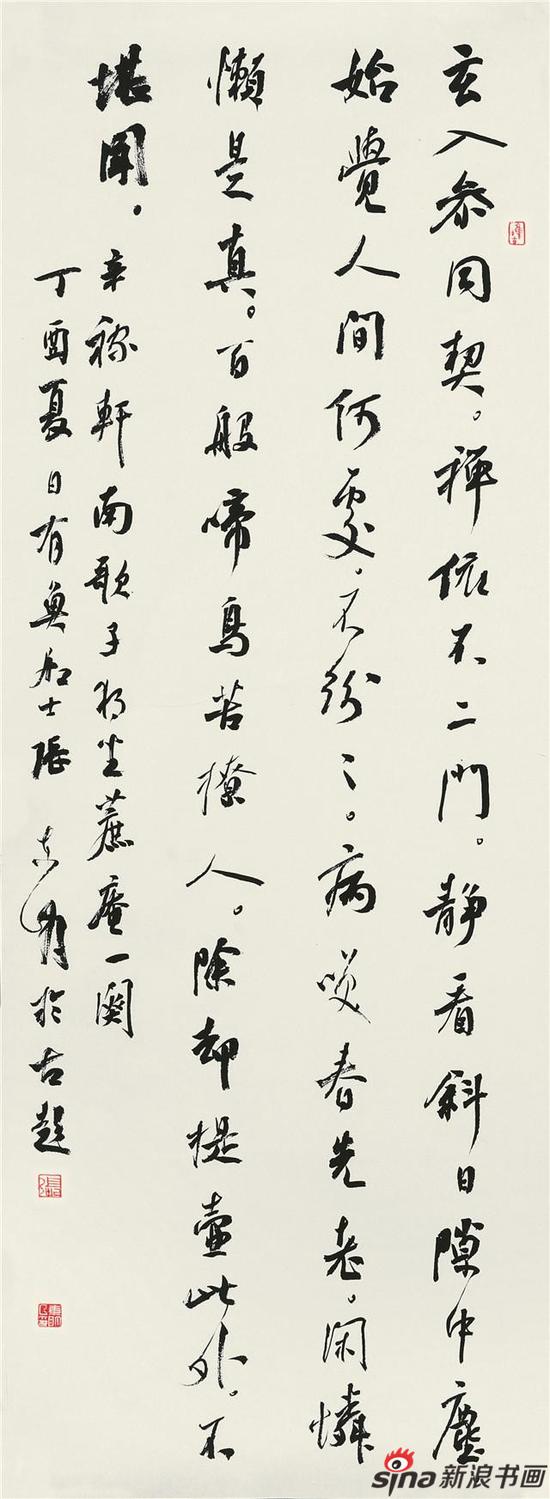 玄入參同契。禪依不二門。靜看斜日隙中塵
始覺人間何處。不紛々。病笑春先老。閑憐
懶是真。百般啼鳥苦撩人。除却提壺此外。不
堪聞。辛稼軒南歌子獨坐蔗庵一闋
丁酉夏日有 士張 於古越
sina新浪书画